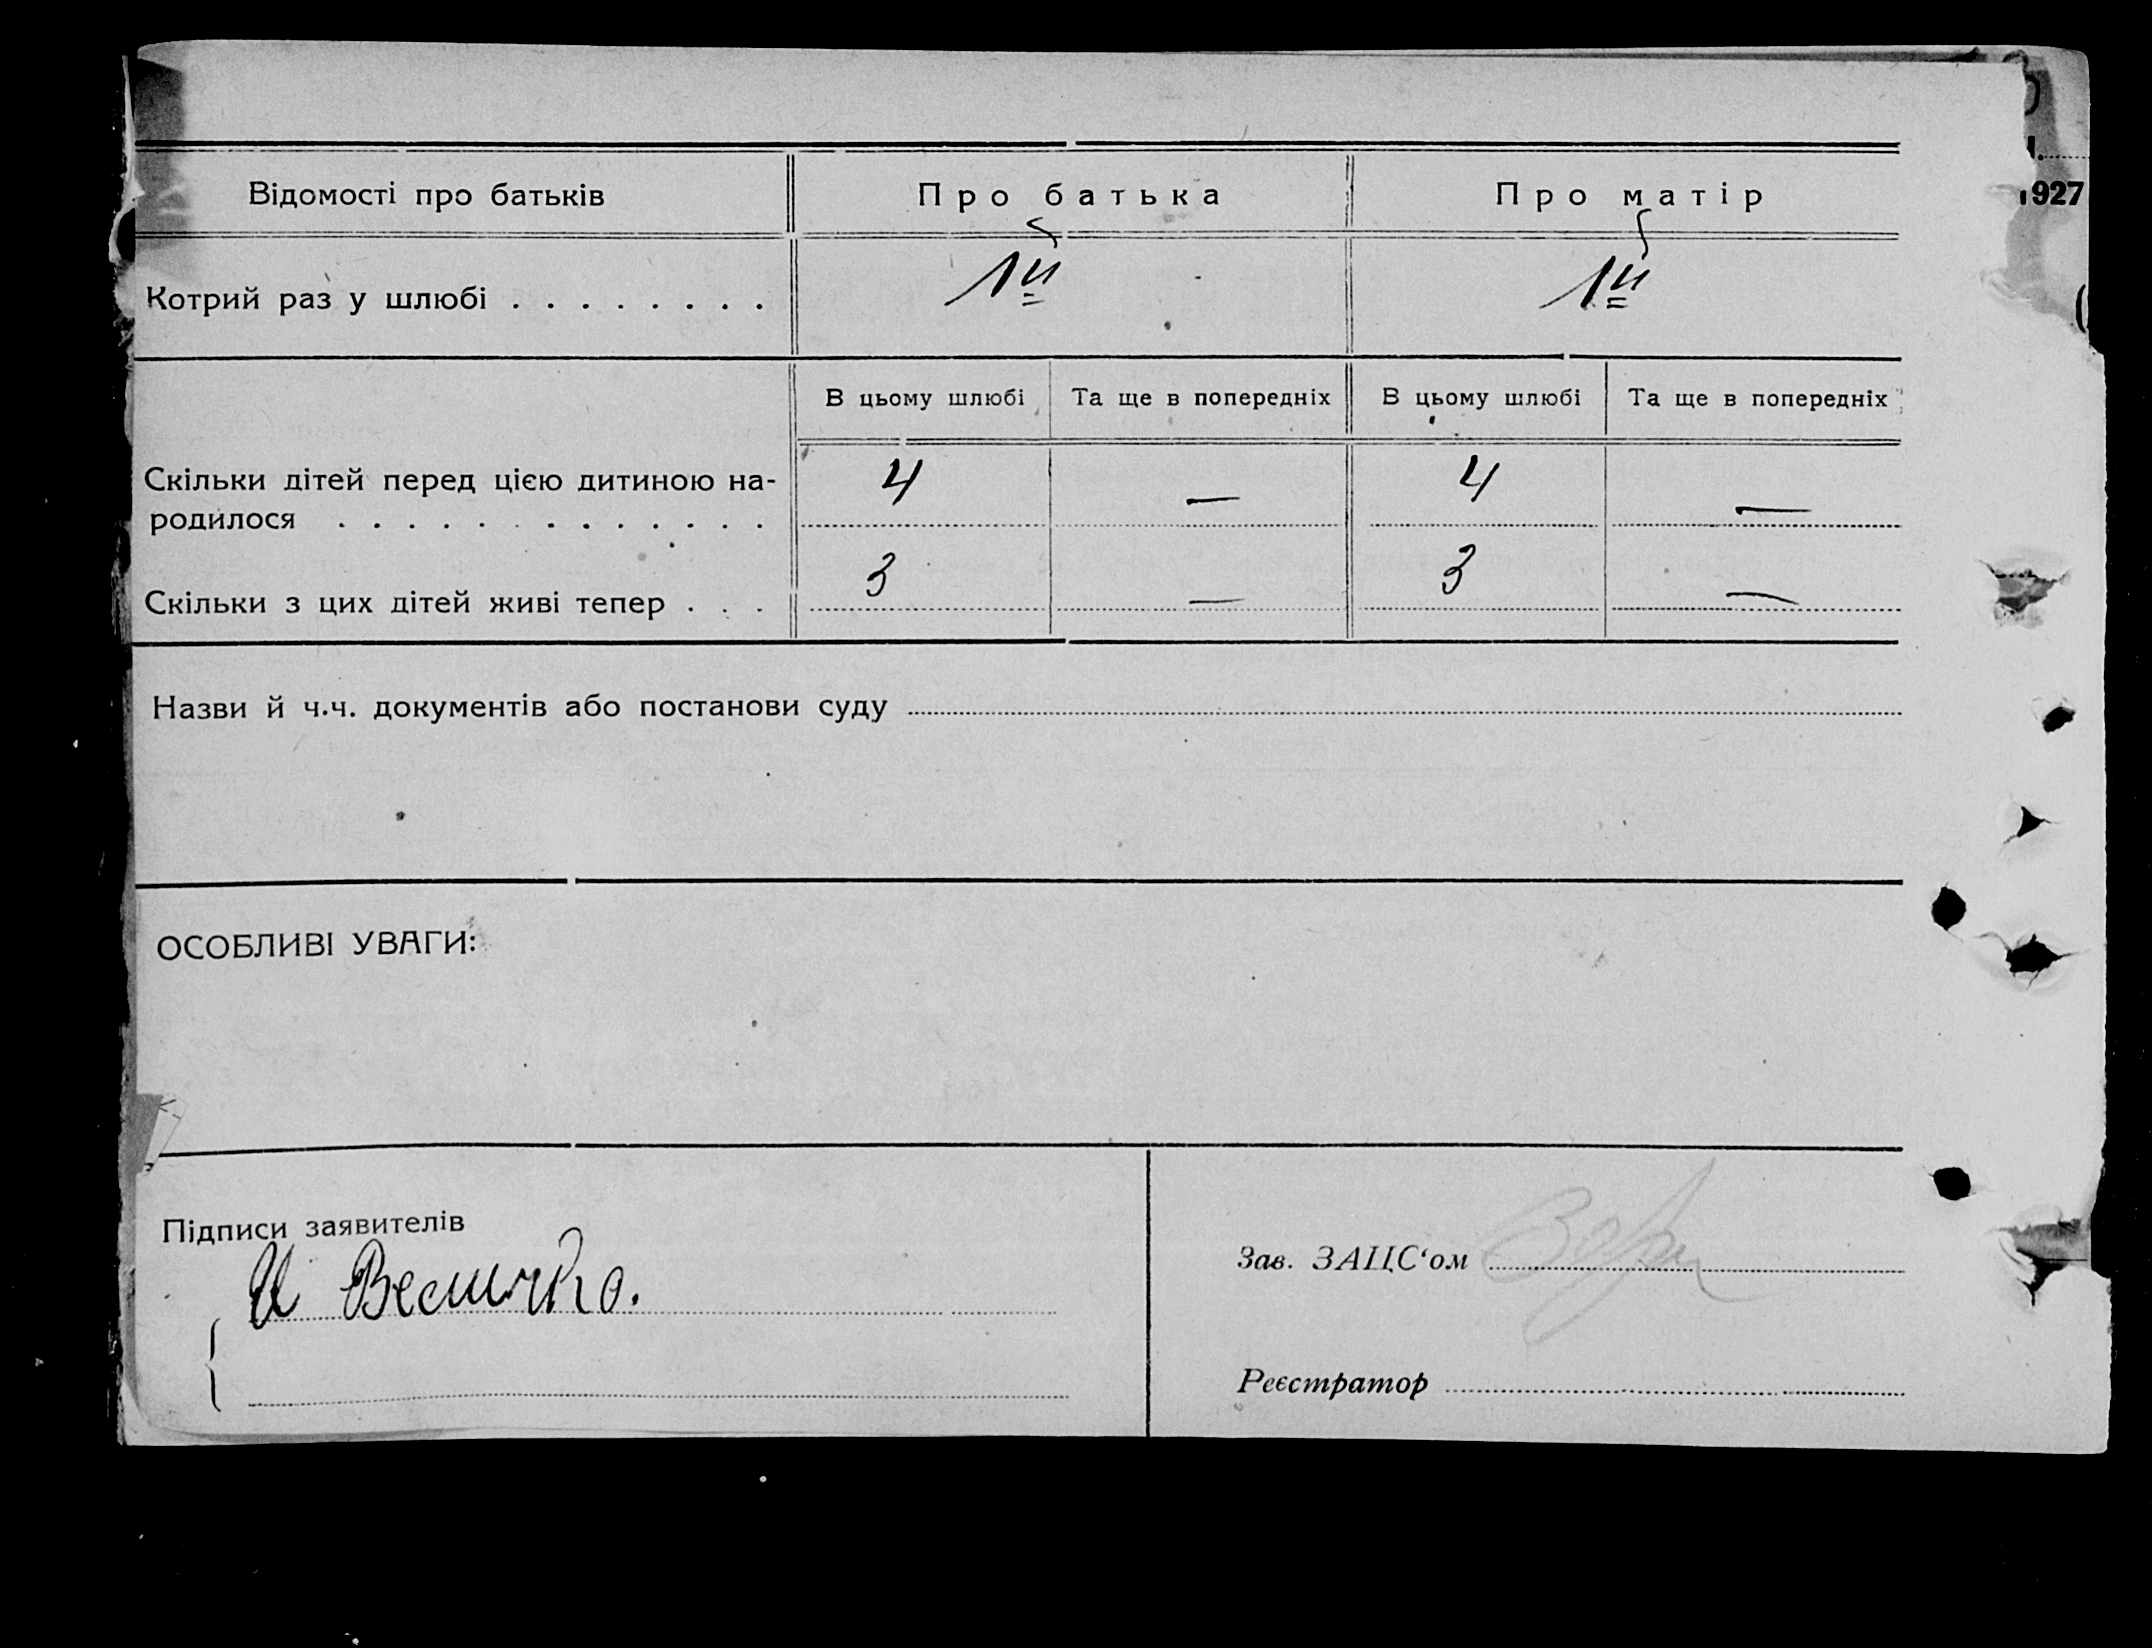 Відомості про батьків Про батька Про матір
1927
Котрий раз у шлюбі . . . . . . . . 1й 1й
В цьому шлюбі Та ще в попередніх В цьому шлюбі Та ще в попередніх
Скільки дітей перед цією дитиною на-
родилося . . . . . . . . . . . . . 4 — 4 —
Скільки з цих дітей живі тепер . . . 3 — 3 —
Назви й ч.ч. документів або постанови суду
ОСОБЛИВІ УВАГИ:
Підписи заявителів
И Величко.
Зав. ЗАЦС‘ом
Реєстратор